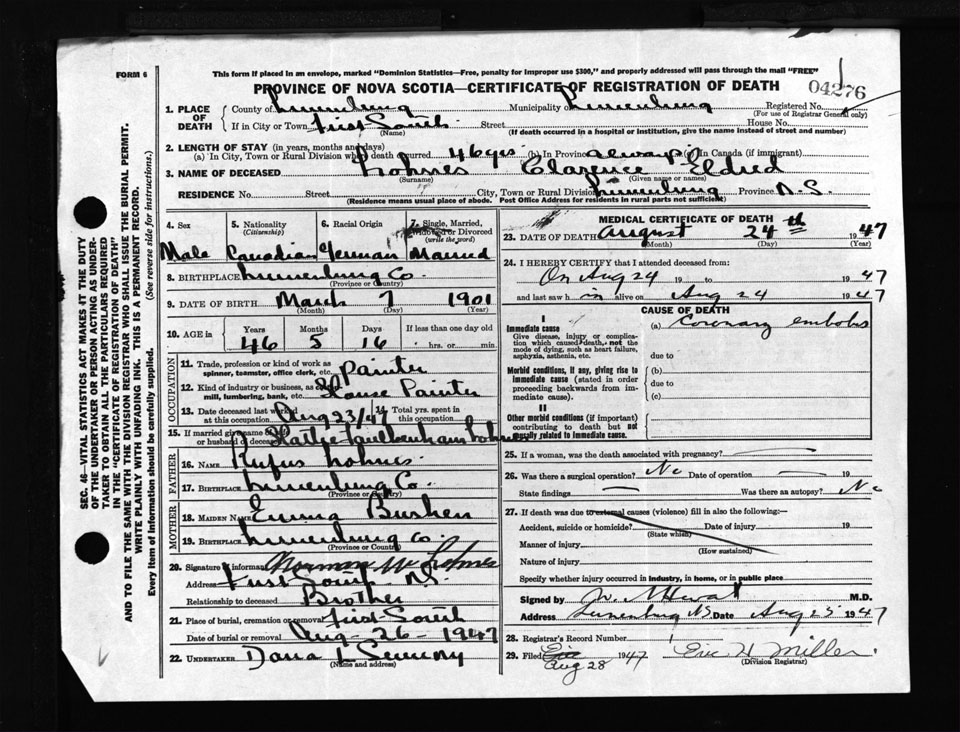 FORM 6
This form if placed in an envelope, marked "Dominion Statistics—Free, penalty for improper use $300," and properly addressed will pass through the mail "FREE"
PROVINCE OF NOVA SCOTIA—CERTIFICATE OF REGISTRATION OF DEATH
04276
1. PLACE OF DEATH
County of Lunenburg Municipality of Lunenburg Registered No.
(For use of Registrar General only)
If in City or Town First South Street House No.
(Name) (If death occurred in a hospital or institution, give the name instead of street and number)
2. LENGTH OF STAY (in years, months and days)
(a) In City, Town or Rural Division where death occurred 46 yrs (b) In Province always (c) In Canada (if immigrant)
3. NAME OF DECEASED Lohnes Clarence Eldred
(Surname) (Given name or names)
RESIDENCE No. Street City, Town or Rural Division Lunenburg Province N.S.
(Residence means usual place of abode. Post Office Address for residents in rural parts not sufficient)
SEC. 46—VITAL STATISTICS ACT MAKES IT THE DUTY
OF THE UNDERTAKER OR PERSON ACTING AS UNDER-
TAKER TO OBTAIN ALL THE PARTICULARS REQUIRED
IN THE "CERTIFICATE OF REGISTRATION OF DEATH"
AND TO FILE THE SAME WITH THE DIVISION REGISTRAR WHO SHALL ISSUE THE BURIAL PERMIT.
WRITE PLAINLY WITH UNFADING INK. THIS IS A PERMANENT RECORD.
Every item of information should be carefully supplied. (See reverse side for instructions.)
4. Sex 5. Nationality 6. Racial Origin 7. Single, Married,
(Citizenship) Widowed or Divorced
(write the word)
Male Canadian German Married
8. BIRTHPLACE Lunenburg Co.
(Province or Country)
9. DATE OF BIRTH March 7 1901
(Month) (Day) (Year)
10. AGE in Years Months Days If less than one day old
46 5 16 hrs. or min.
OCCUPATION
11. Trade, profession or kind of work as
spinner, teamster, office clerk, etc. Painter
12. Kind of industry or business, as
mill, lumbering, bank, etc. House Painter
13. Date deceased last worked Total yrs. spent in
at this occupation Aug 23/47 this occupation
15. If married give name
or husband of deceased Faulkenham Lohnes
FATHER
16. NAME Rufus Lohnes
17. BIRTHPLACE Lunenburg Co.
(Province or Country)
MOTHER
18. MAIDEN NAME Emma Bushen
19. BIRTHPLACE Lunenburg Co.
(Province or Country)
20. Signature of informant Norman Lohnes
Address First South N.S.
Relationship to deceased Brother
21. Place of burial, cremation or removal First South
Date of burial or removal Aug - 26 - 1947
22. UNDERTAKER Dana L
(Name and address)
MEDICAL CERTIFICATE OF DEATH
23. DATE OF DEATH August 24th 1947
(Month) (Day) (Year)
24. I HEREBY CERTIFY that I attended deceased from:
On Aug 24 19 to 1947
and last saw him alive on Aug 24 1947
CAUSE OF DEATH
I
Immediate cause
Give disease, injury or complica-
tion which caused death, not the
mode of dying, such as heart failure,
asphyxia, asthenia, etc.
(a) Coronary embolus
due to
Morbid conditions, if any, giving rise to
immediate cause (stated in order
proceeding backwards from im-
mediate cause).
(b)
due to
(c)
II
Other morbid conditions (if important)
contributing to death but not
causally related to immediate cause.
25. If a woman, was the death associated with pregnancy?
26. Was there a surgical operation? No Date of operation 19
State findings Was there an autopsy? No
27. If death was due to external causes (violence) fill in also the following:—
Accident, suicide or homicide? Date of injury 19
(State which)
Manner of injury
(How sustained)
Nature of injury
Specify whether injury occurred in industry, in home, or in public place
Signed by M.D.
Address Lunenburg NS Date Aug 25 1947
28. Registrar's Record Number
29. Filed Aug 28 1947 Eric H Miller
(Division Registrar)